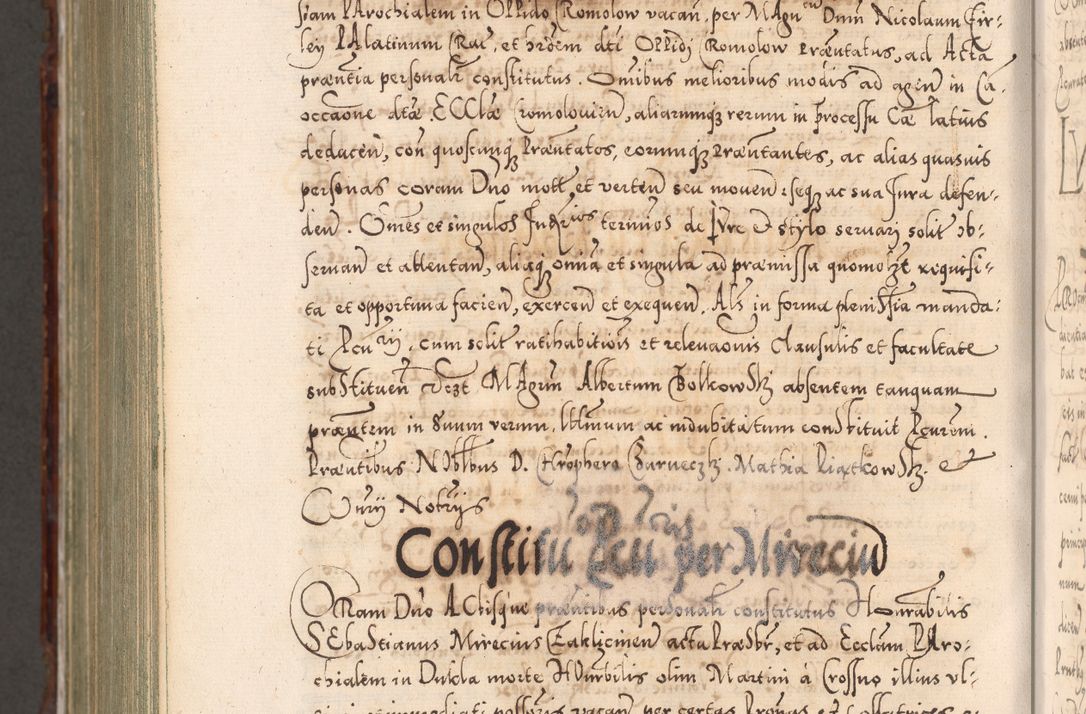 siam PArochialem in Oppido Romolow vacan, per MAgncum Dnum Nicolaum Fir-
ley PAlatinum Rau, et hrdem dti Oppidj Romolow Præntatus, ad Acta
præntia personalr constitutus. Omibus melioribus modis ad agen in Ca.
occaone dtæ ECClæ Cromolovien, aliarumq rerum in processu Cæ latius
deducen, con quoscunq Præntatos, eorumq Præntantes, ac alias quasuis
personas coram Dno mott et verten seu mouen seq ac sua Jura defen-
den. Omes et singulos Jurios termios de Jure & stylo servarj solit ob-
servan et attentan, aliaq omia et singula ad præmissa quomolzt requisi-
ta et opportuna facien, exercen et exequen. Als in forma plenissia manda-
ti Pcurij, cum solit ratihabitiois et relevaonis Clausulis et facultate
substituen Vdezt MAgrum Albertum Bolkowskj absentem tanquam
præntem in suum verum, lttimum ac indubitatum constituit Pcurem.
Præntibus NObilbus D. Chrophero Barneczkj. Mathia Piątkowskj. et
Curij Notrijs
Constitu Pcuris per Mirreciu
COram Dno ACbisque præntibus personalr constitutus Honorabilis
SEbastianus Mirecius Zaklicinen acta Præsbr, et ad Ecclam PAro-
chialem in Dukla morte HOnrbilis olim Martini à Crossno illius vl-